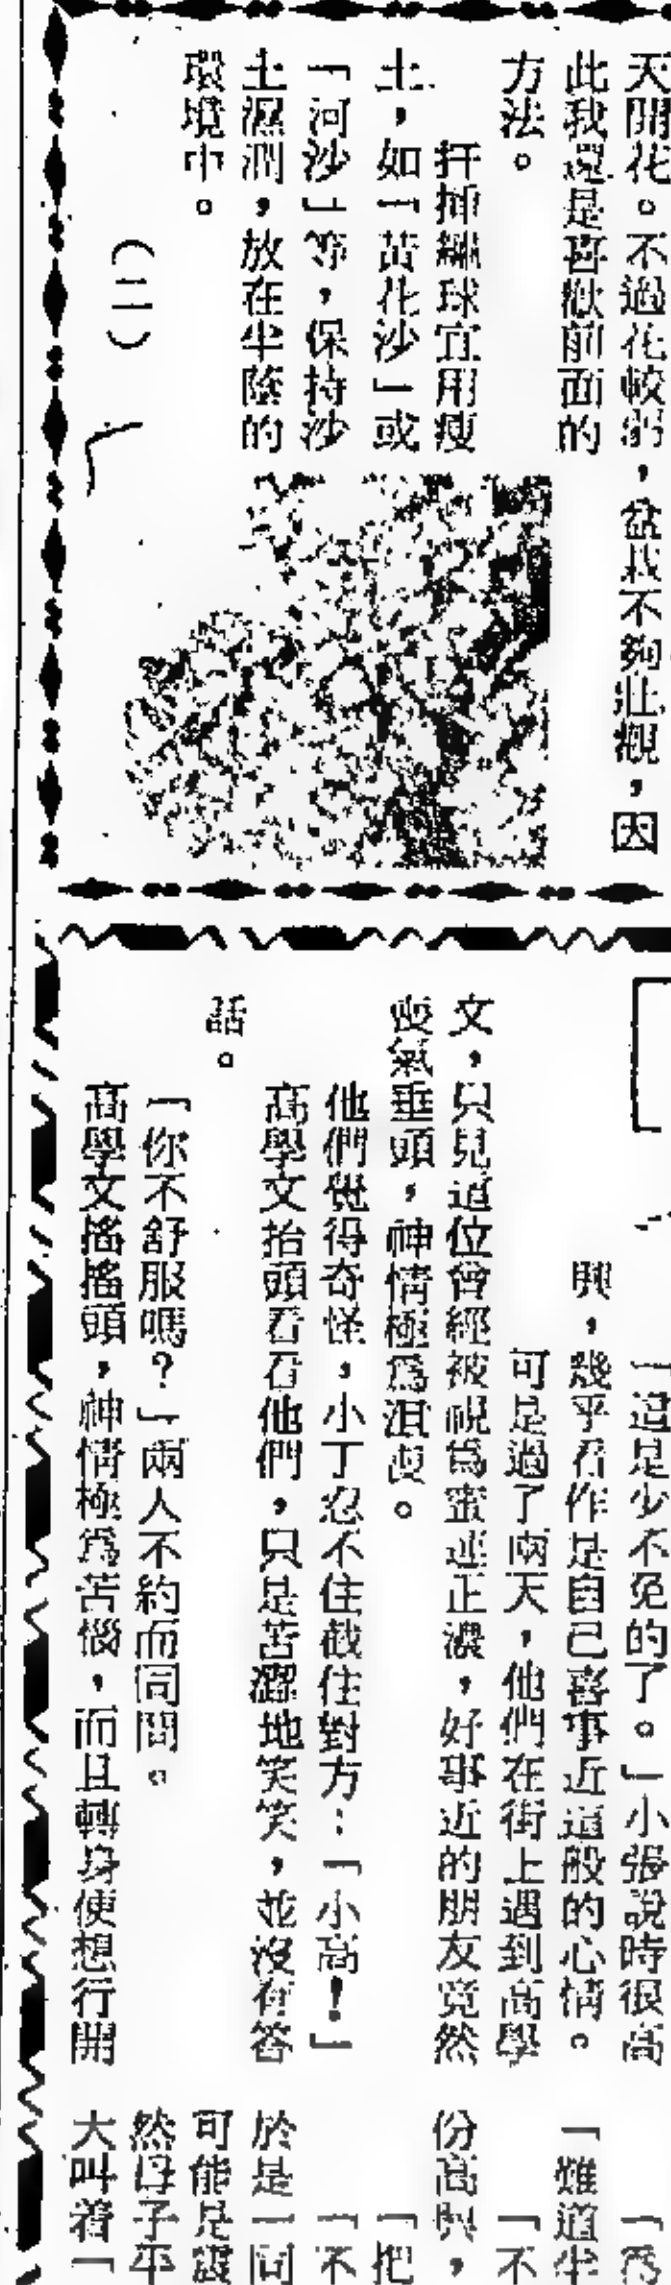 天開花。不過花較弱，盆栽不夠壯觀，因
此我還是喜歡前面的
方法。
扦插繡球宜用瘦
土，如「黃花沙」或
「河沙」等，保持沙
土濕潤，放在半陰的
環境中。
（二）
「這是少不免的了。」小張說時很高
興，幾乎看作是自己喜事近這般的心情。
可是過了兩天，他們在街上遇到高學
文，只見這位曾經被視爲蜜運正濃，好事近的朋友竟然
喪氣垂頭，神情極爲沮喪。
他們覺得奇怪，小丁忍不住截住對方：「小高！」
高學文抬頭看看他們，只是苦澀地笑笑，並沒有答
話。
「你不舒服嗎？」兩人不約而同問。
高學文搖搖頭，神情極爲苦惱，而且轉身便想行開
「爲
「難道半
「不
份高興，
「把
「不
於是一同
可能是震
然母子平
大叫着「